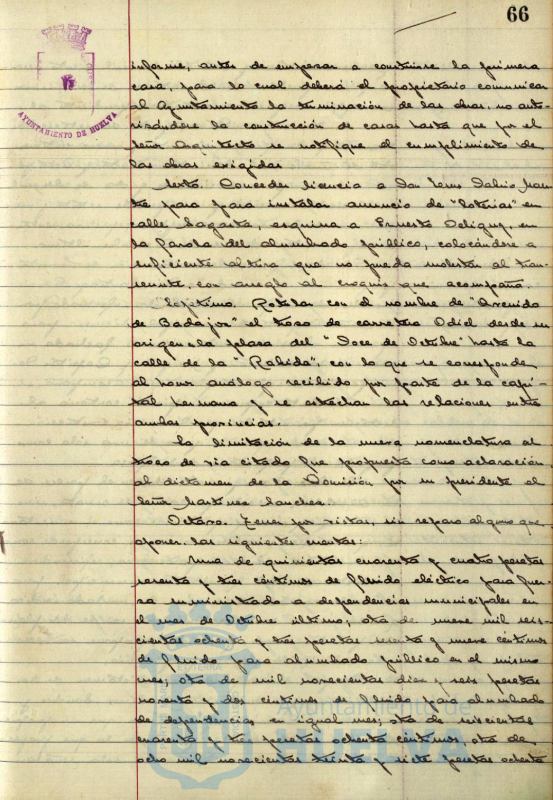 66
AYUNTAMIENTO DE HUELVA
informe, antes de empezar a construirse la primera
casa, para lo cual deberá el propietario comunicar
al Ayuntamiento la terminación de las obras, no auto-
rizándose la construcción de casas hasta que por el
Señor Arquitecto se notifique el cumplimiento de
las obras exigidas
Sexto. Conceder licencia a Don
para instalar anuncio de "loterias" en
calle Sagasta, esquina a Ernesto Deligny, en
la farola del alumbrado público, colocándose a
suficiente altura que no pueda molestar al tran-
seunte, con arreglo al croquis que acompaña.
Septimo. Rotular con el nombre de "Avenida
de Badajoz" el trozo de carretera Odiel desde su
origen a la plaza del "Doce de Octubre" hasta la
calle de la "Rabida", con lo que se corresponde
al honor análogo recibido por parte de la capi-
tal hermana y se estrechan las relaciones entre
ambas provincias.
La limitación de la nueva nomenclatura al
trozo de via citado fue propuesta como aclaración
al dictamen de la Comisión por su presidente el
Señor Martinez Sanchez.
Octavo. Tener por vistas, sin reparo alguno que
oponer, las siguientes cuentas:
Una de quinientas cuarenta y cuatro pesetas
sesenta y tres céntimos de fluido eléctrico para fuer-
za suministrado a dependencias municipales en
el mes de Octubre último; otra de nueve mil seis-
cientas ochenta y tres pesetas sesenta y nueve céntimos
de fluido para alumbrado público en el mismo
mes; otra de mil novecientas diez y seis pesetas
noventa y dos céntimos de fluido para alumbrado
de dependencias en igual mes; otra de seiscientas
cuarenta y tres pesetas ochenta céntimos, otra de
ocho mil novecientas treinta y siete pesetas ochenta
Ayuntamiento de
HUELVA